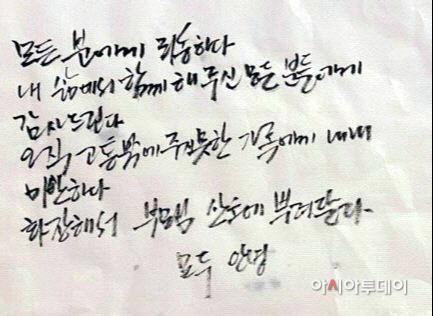 모든 분에게 죄송하다
내 삶에서 함께 해주신 모든 분들에게
감사드린다
오직 고통밖에 주지못한 가족에게 내내
미안하다
화장해서 부모님 산소에 뿌려달라.
모두 안녕
아시아투데이